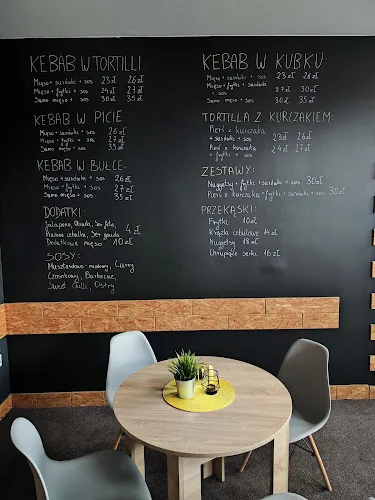 KEBAB W TORTILLI:
Mięso + surówka + sos 23 zł 26 zł
Mięso + frytki + sos 24 zł 27 zł
Samo mięso + sos 30 zł 35 zł
KEBAB W PICIE:
Mięso + surówka + sos 26 zł
Mięso + frytki + sos 27 zł
Samo mięso + sos 35 zł
KEBAB W BUŁCE:
Mięso + surówka + sos 26 zł
Mięso + frytki + sos 27 zł
Samo mięso + sos 35 zł
DODATKI
Jalapeno, Oliwka, Ser feta, 4 zł
Prażona cebulka, Ser gouda
Dodatkowe mięso 10 zł
SOSY:
Musztardowo-miodowy, Curry
Czosnkowy, Barbecue,
Sweet Chilli, Ostry
KEBAB W KUBKU:
Mięso + surówka + sos 23 zł 26 zł
Mięso + frytki + sos 27 zł
Samo mięso + sos 30 zł 35 zł
TORTILLA Z KURCZAKIEM:
Pierś z kurczaka
+ surówka + sos 23 zł 26 zł
Pierś z kurczaka 24 zł 27 zł
+ frytki + sos
ZESTAWY:
Nuggetsy + frytki + surówka + sos 30 zł
Pierś z kurczaka + frytki + surówka + sos 30 zł
PRZEKĄSKI:
Frytki 10 zł
Krążki cebulowe 14 zł
Nuggetsy 18 zł
Chrupiące serki 16 zł